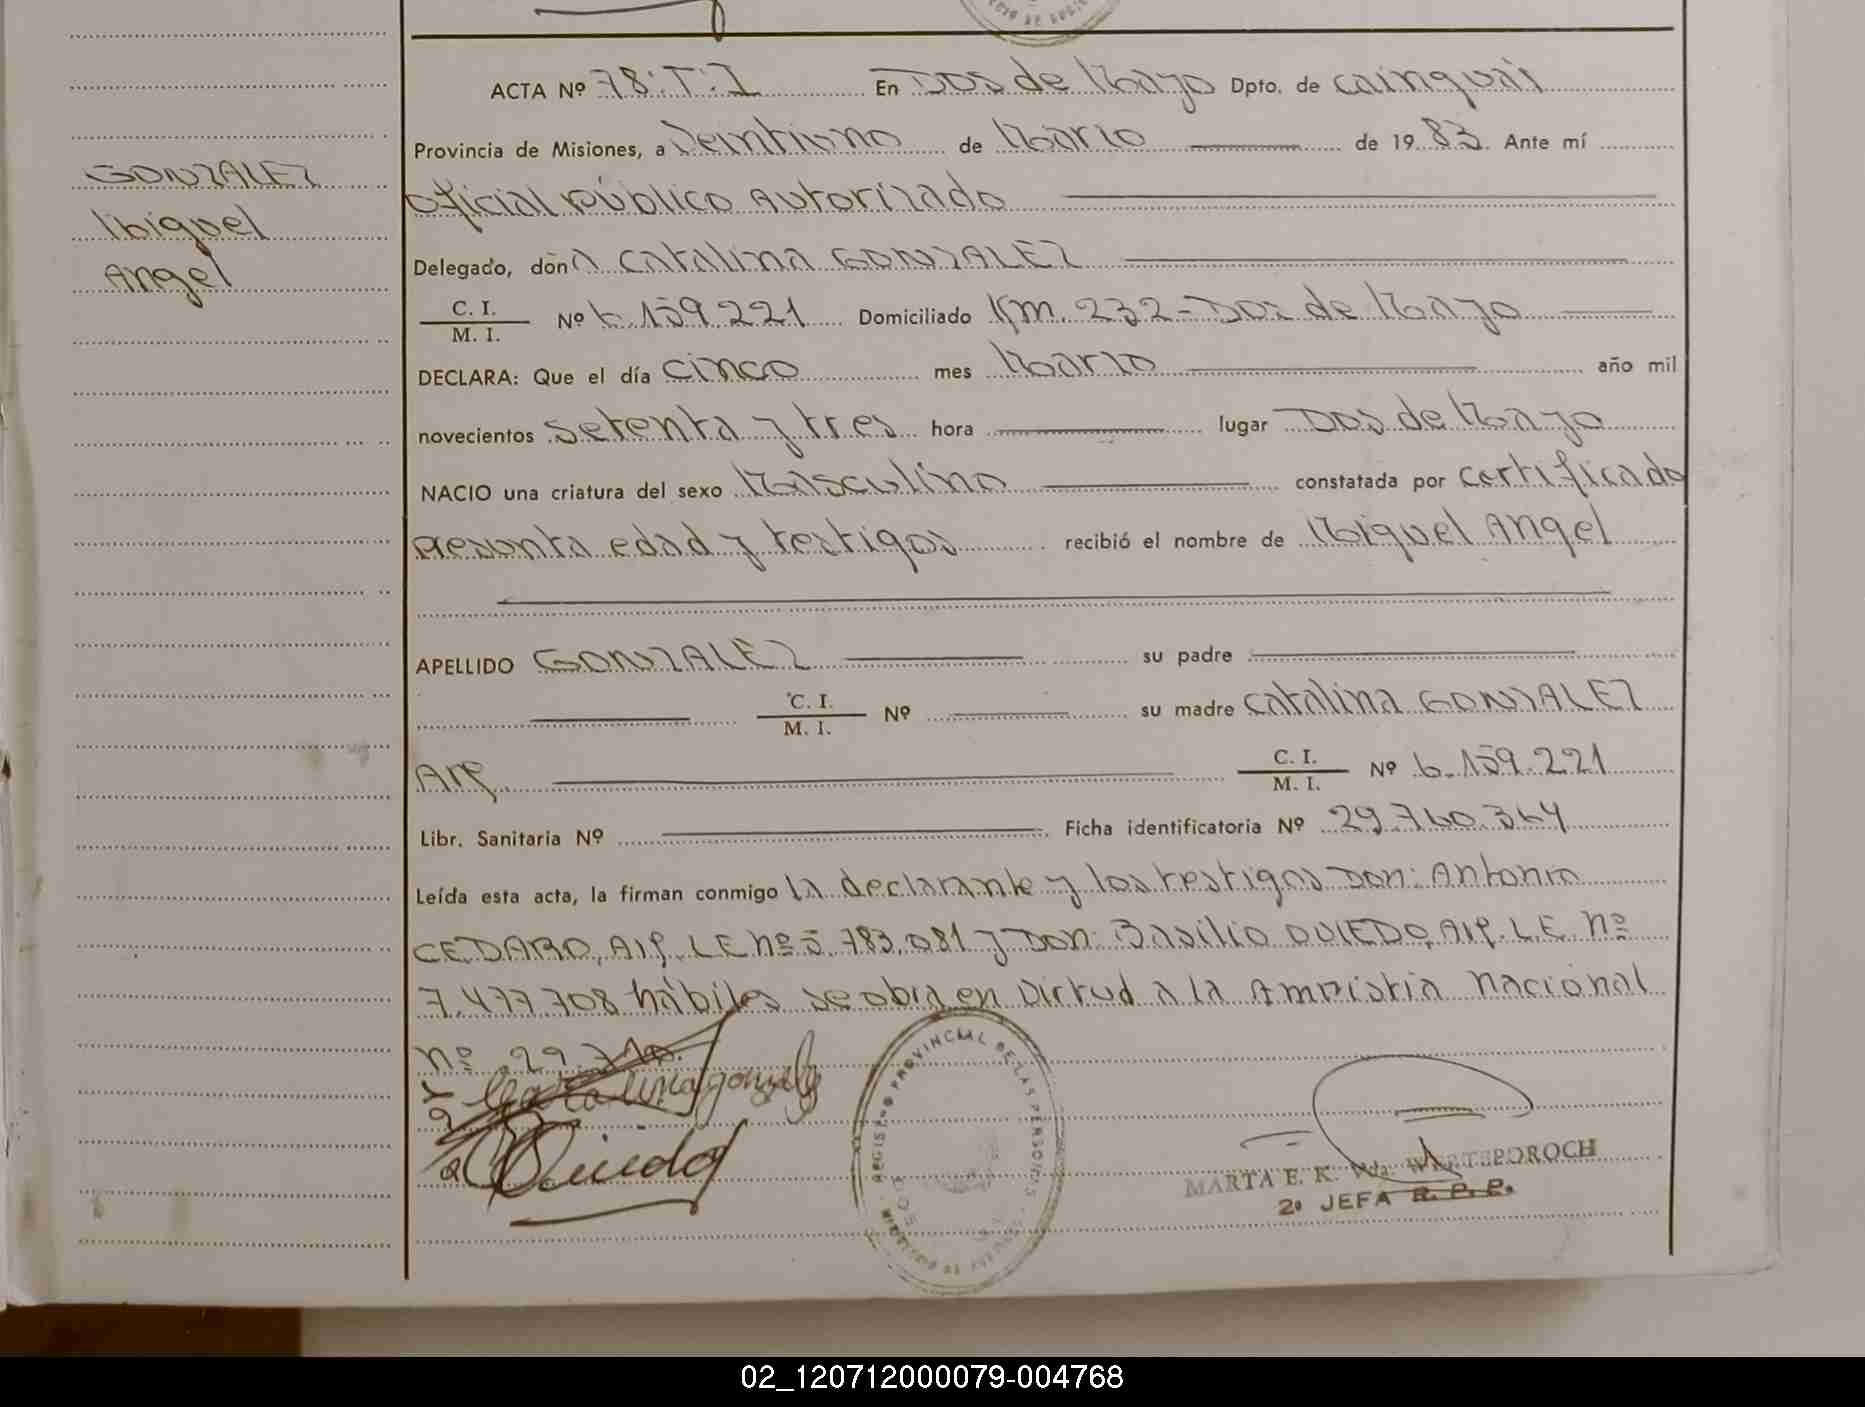 GONZALEZ
Miguel
Angel
ACTA Nº 78.T.I En Dos de Mayo Dpto. de Cainguás
Provincia de Misiones, a Veintiuno de Marzo de 1983. Ante mí
Oficial Público Autorizado
Delegado, don A Catalina GONZALEZ
C. I.
M. I. Nº 6.159.221 Domiciliado Km. 232 - Dos de Mayo
DECLARA: Que el día cinco mes Marzo año mil
novecientos setenta y tres hora lugar Dos de Mayo
NACIO una criatura del sexo Masculino constatada por certificado
presunta edad y testigos recibió el nombre de Miguel Angel
APELLIDO GONZALEZ su padre
C. I.
M. I. Nº su madre Catalina GONZALEZ
Arg. C. I.
M. I. Nº 6.159.221
Libr. Sanitaria Nº Ficha identificatoria Nº 29.760.364
Leída esta acta, la firman conmigo la declarante y los testigos Don: Antonio
CEDARO, Arg. L.E. nº 5.783.081 y Don: Basilio OVIEDO, Arg. L.E. nº
7.477.708 hábiles se obra en virtud a la Amnistia Nacional
nº 22.710.
Catalina gonzalez
Oviedo
REGISTRO PROVINCIAL DE LAS PERSONAS
MARTA E. K. Vda. WERTEPOROCH
2º JEFA R. P. P.
02_120712000079-004768